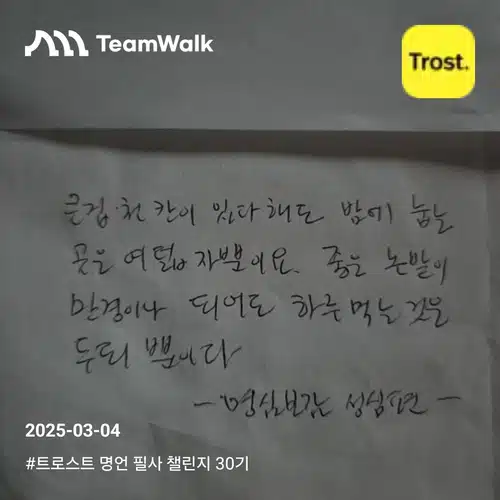 TeamWalk
Trost.
큰집 천 칸이 있다 해도 밤에 눕는
곳은 여덟 자뿐이요. 좋은 논밭이
만경이나 되어도 하루 먹는 것은
두되 뿐이다
- 명심보감 성심편 -
2025-03-04
#트로스트 명언 필사 챌린지 30기